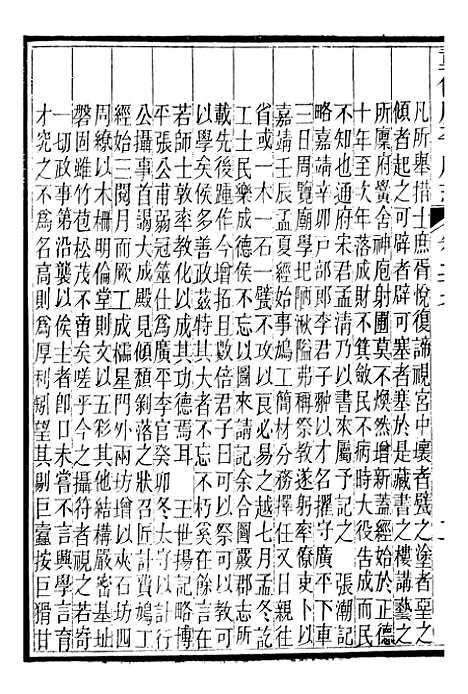 凡所舉措士庶胥悅復諦視宮中壞者甓之塗者堊之
傾者起之可辟者辟可塞者塞於是藏書之樓講藝之
所廩府黌舍神庖射圃莫不煥然增新蓋經始於正德
十年至次年落成財不箕斂民不病時大役告成而民
不知也通府宋君孟清乃以書來屬予記之　張潮記
略嘉靖辛卯戶部郎李君子翀以才名擢守廣平下車
三日周覽廟學圮陋湫隘弗稱祭教遂躬率僚吏卜以
嘉靖壬辰孟夏經始事鳩工簡材分務擇任又日親往
省或一木一石一甓不攻以良必易之越七月孟冬訖
工士民樂成德侯不忘以圖來請記余合圖嚴郡志所
載先後踵作今增拓且數倍君子曰可以祭可以教可
以學矣侯多善政茲特其大者不忘不朽奚在餘言在
若師士敦率教化成其功德焉耳　　王世揚記略博
平張公甫弱冠筮仕為廣平李官癸卯冬太守以計行
公攝事首謁大成殿見傾頹剝落之狀召匠計費鳩工
經始三閱月而厥工成櫺星門外兩坊增以夾石坊四
周繚以木柵明倫堂則兩楹文以五彩其他嚴密基址
磐固雖竹苞松茂不啻矣嗟乎今之攝符者視之若寄
一切政事第沿襲以俟士者即口未嘗不言興學言育
才究之不為名高則為厚利矧望其剔巨蠹按巨猾甘